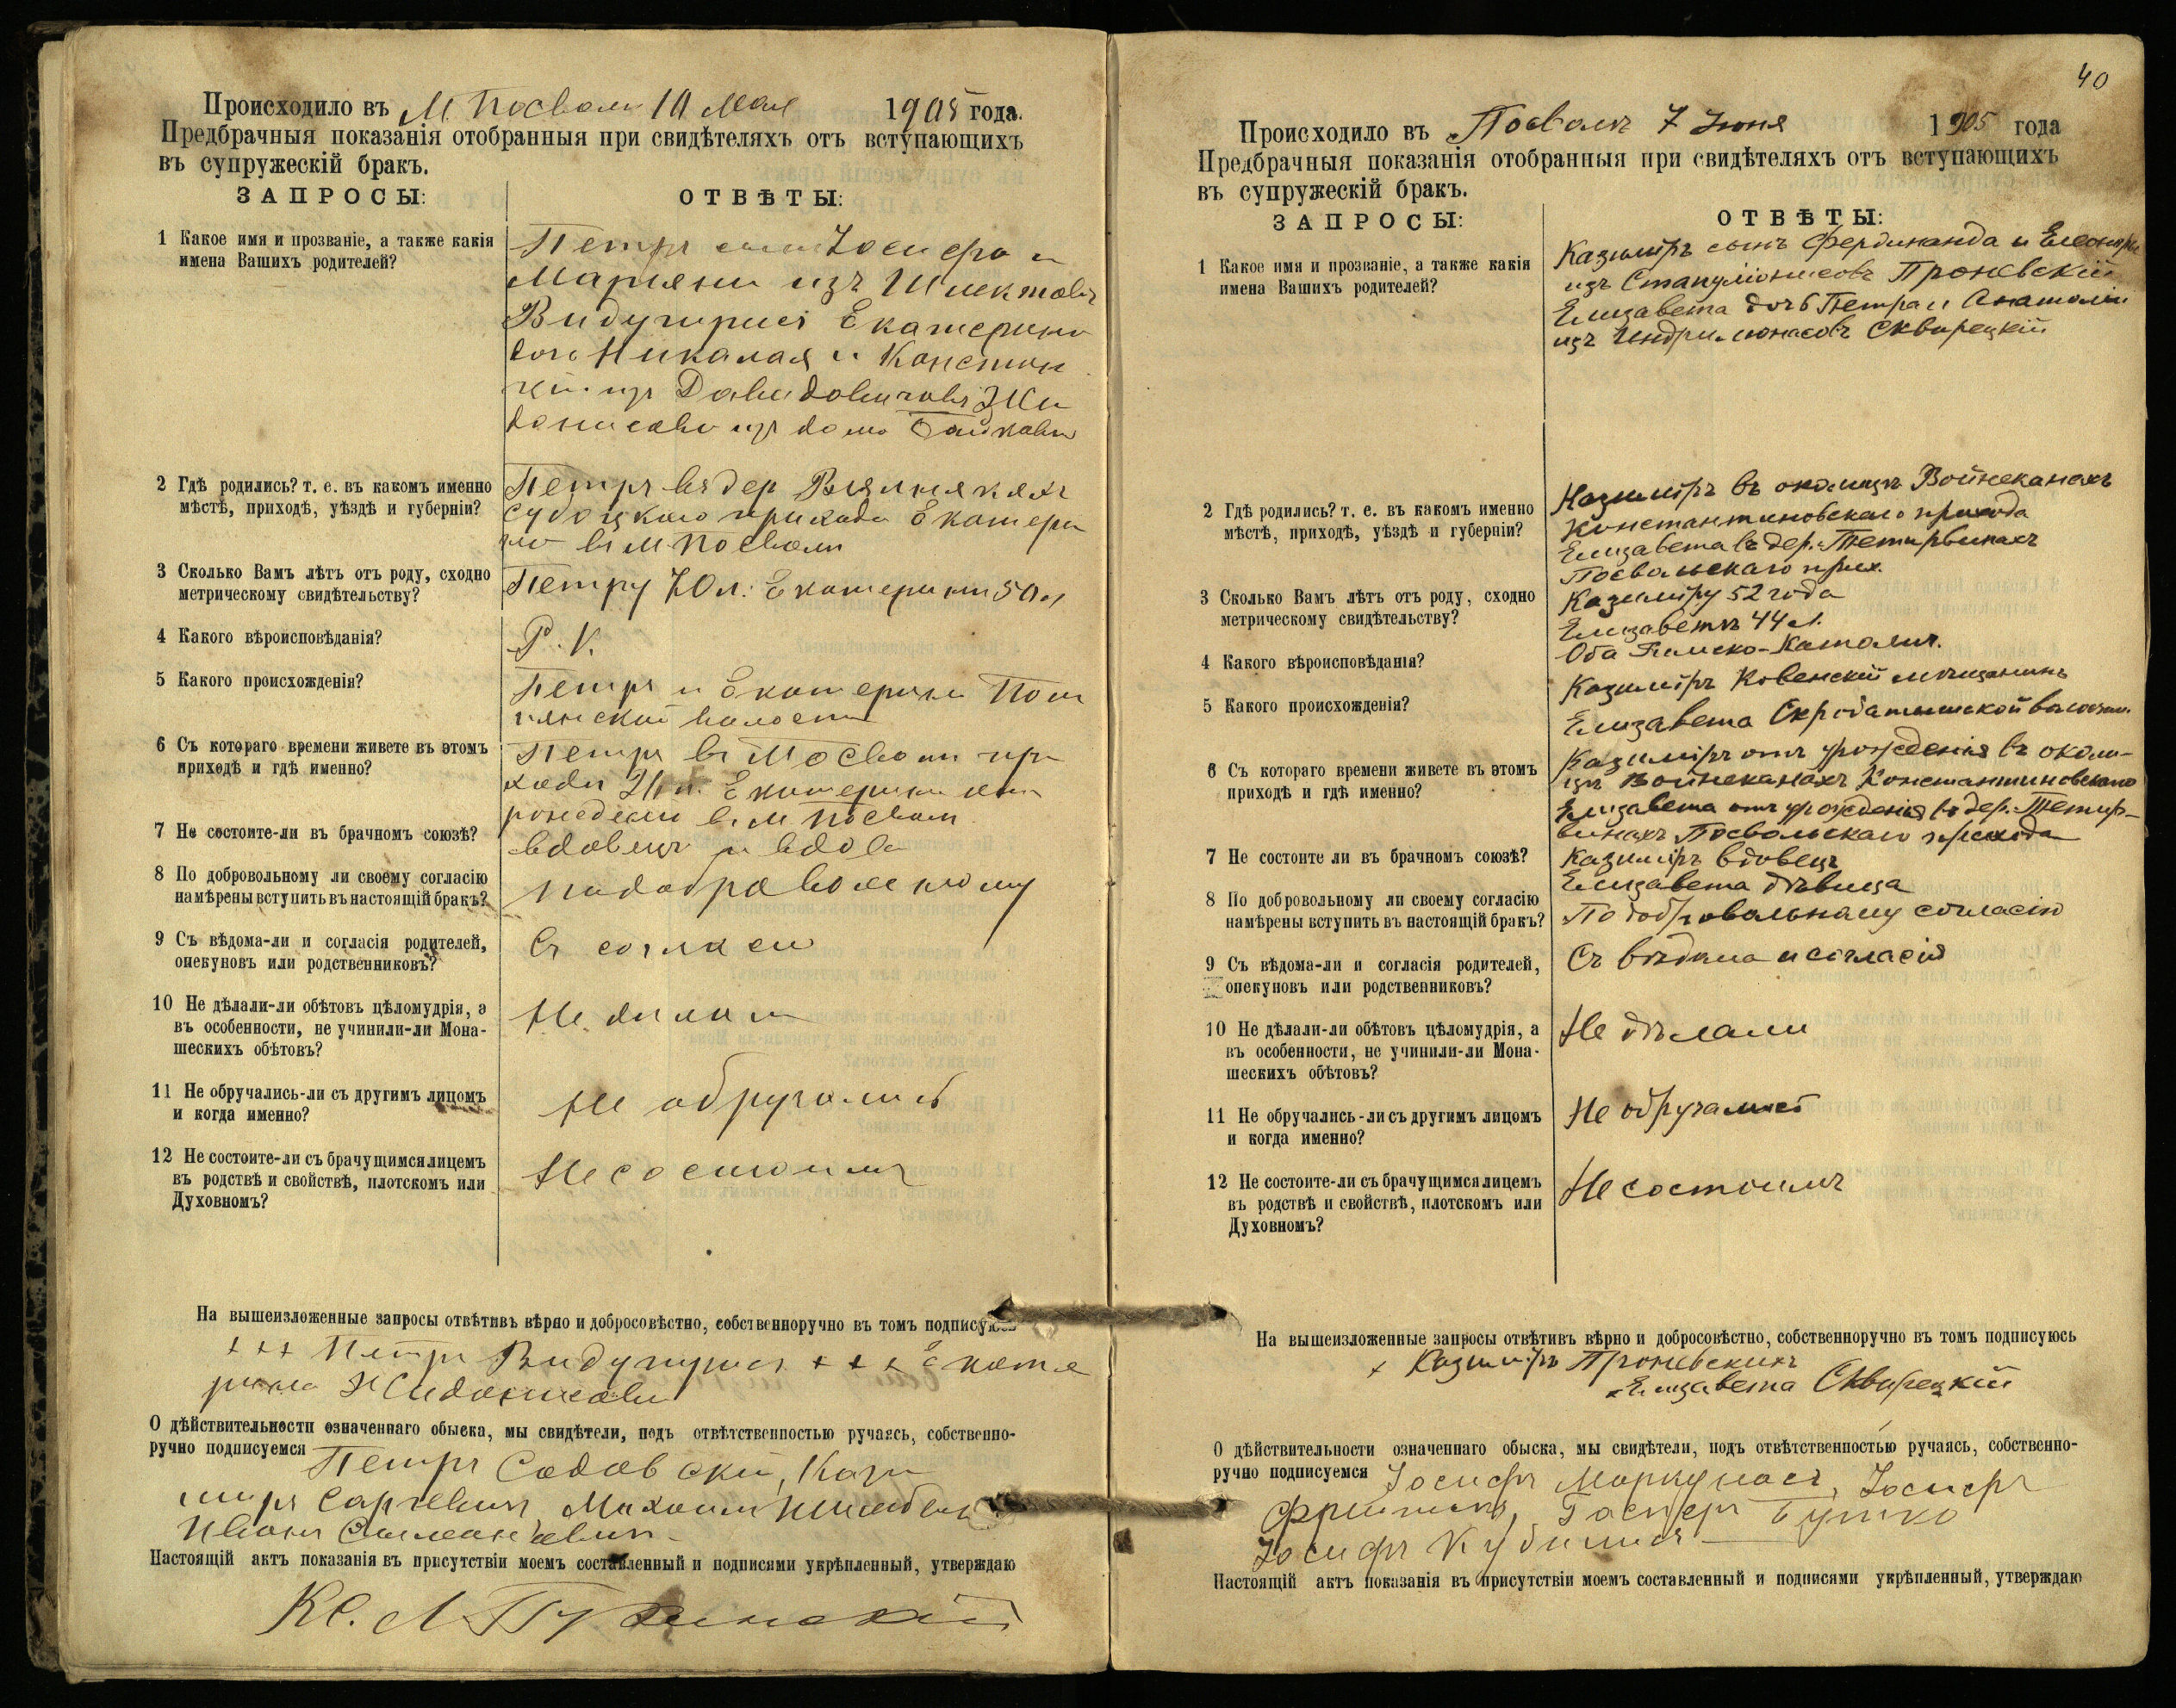 Происходило въ М. Посволи 10 Мая 1905 года.
Предбрачныя показанія отобранныя при свидѣтеляхъ отъ вступающихъ
въ супружескій бракъ.
ЗАПРОСЫ:
ОТВѢТЫ:
1 Какое имя и прозваніе, а также какія
имена Вашихъ родителей?
Петръ сынъ Іосифа и
Маріяны изъ
Видугирисъ Екатерина
дочь Николая и Констан
ціи изъ Давидовичовъ Жи
2 Гдѣ родились? т. е. въ какомъ именно
мѣстѣ, приходѣ, уѣздѣ и губерніи?
Петръ въ дер
прихода Екатери
на въ М Посволи
3 Сколько Вамъ лѣтъ отъ роду, сходно
метрическому свидѣтельству?
Петру 70 л. Екатерини 50 л
4 Какого вѣроисповѣданія?
Р. К.
5 Какого происхожденія?
Петръ и Екатерина
волости
6 Съ котораго времени живете въ этомъ
приходѣ и гдѣ именно?
Петръ въ Посволи при
Екатерина
въ М Посволи
7 Не состоите-ли въ брачномъ союзѣ?
вдовецъ и вдова
8 По добровольному ли своему согласію
намѣрены вступить въ настоящій бракъ?
Подобровольному
9 Съ вѣдома-ли и согласія родителей,
опекуновъ или родственниковъ?
Съ согласи
10 Не дѣлали-ли обѣтовъ цѣломудрія, а
въ особенности, не учинили-ли Мона-
шескихъ обѣтовъ?
Не дилали
11 Не обручались-ли съ другимъ лицомъ
и когда именно?
Не обручались
12 Не состоите-ли съ брачущимся лицемъ
въ родствѣ и свойствѣ, плотскомъ или
Духовномъ?
Не состоимъ
На вышеизложенные запросы отвѣтивъ вѣрно и добросовѣстно, собственноручно въ томъ подписуюсь
+++ Петръ Видугирисъ +++ Екате
рина
О дѣйствительности означеннаго обыска, мы свидѣтели, подъ отвѣтственностью ручаясь, собственно-
ручно подписуемся Петръ Садовский, Кази
миръ
Настоящій актъ показанія въ присутствіи моемъ составленный и подписями укрѣпленный, утверждаю
Кс. Л.
40
Происходило въ Посволѣ 7 Іюня 1905 года
Предбрачныя показанія отобранныя при свидѣтеляхъ отъ вступающихъ
въ супружескій бракъ.
ЗАПРОСЫ:
ОТВѢТЫ:
1 Какое имя и прозваніе, а также какія
имена Вашихъ родителей?
Казиміръ сынъ Фердинанда и Елеоноры
изъ Стапулионисовъ Проневскій
Елизавета дочь Петра и Анатоліи
изъ Индрилюнасовъ Сквирецкій
2 Гдѣ родились? т. е. въ какомъ именно
мѣстѣ, приходѣ, уѣздѣ и губерніи?
Казиміръ въ околицѣ Войнеканахъ
Константиновскаго прихода
Елизавета въ дер. Тетирвинахъ
Посвольскаго прих.
3 Сколько Вамъ лѣтъ отъ роду, сходно
метрическому свидѣтельству?
Казиміру 52 года
Елизаветѣ 44 л.
4 Какого вѣроисповѣданія?
Оба Римско-Католич.
5 Какого происхожденія?
Казиміръ Ковенскій мѣщанинъ
Елизавета волости.
6 Съ котораго времени живете въ этомъ
приходѣ и гдѣ именно?
Казиміръ отъ урожденія въ околи-
цѣ Войнеканахъ Константиновскаго
Елизавета отъ урожденія въ дер. Тетир-
винахъ Посвольскаго прихода
7 Не состоите ли въ брачномъ союзѣ?
Казиміръ вдовецъ
Елизавета дѣвица
8 По добровольному ли своему согласію
намѣрены вступить въ настоящій бракъ?
По добровольному согласію
9 Съ вѣдома-ли и согласія родителей,
опекуновъ или родственниковъ?
Съ вѣдома и согласія
10 Не дѣлали-ли обѣтовъ цѣломудрія, а
въ особенности, не учинили-ли Мона-
шескихъ обѣтовъ?
Не дѣлали
11 Не обручались-ли съ другимъ лицомъ
и когда именно?
Не обручались
12 Не состоите-ли съ брачущимся лицемъ
въ родствѣ и свойствѣ, плотскомъ или
Духовномъ?
Не состоимъ
На вышеизложенные запросы отвѣтивъ вѣрно и добросовѣстно, собственноручно въ томъ подписуюсь
+ Казиміръ Проневскихъ
Елизавета Сквирецкій
О дѣйствительности означеннаго обыска, мы свидѣтели, подъ отвѣтственностью ручаясь, собственно-
ручно подписуемся Іосифъ Маркунасъ, Іосифъ
Бутко
Іосифъ Кубилюсъ
Настоящій актъ показанія въ присутствіи моемъ составленный и подписями укрѣпленный, утверждаю